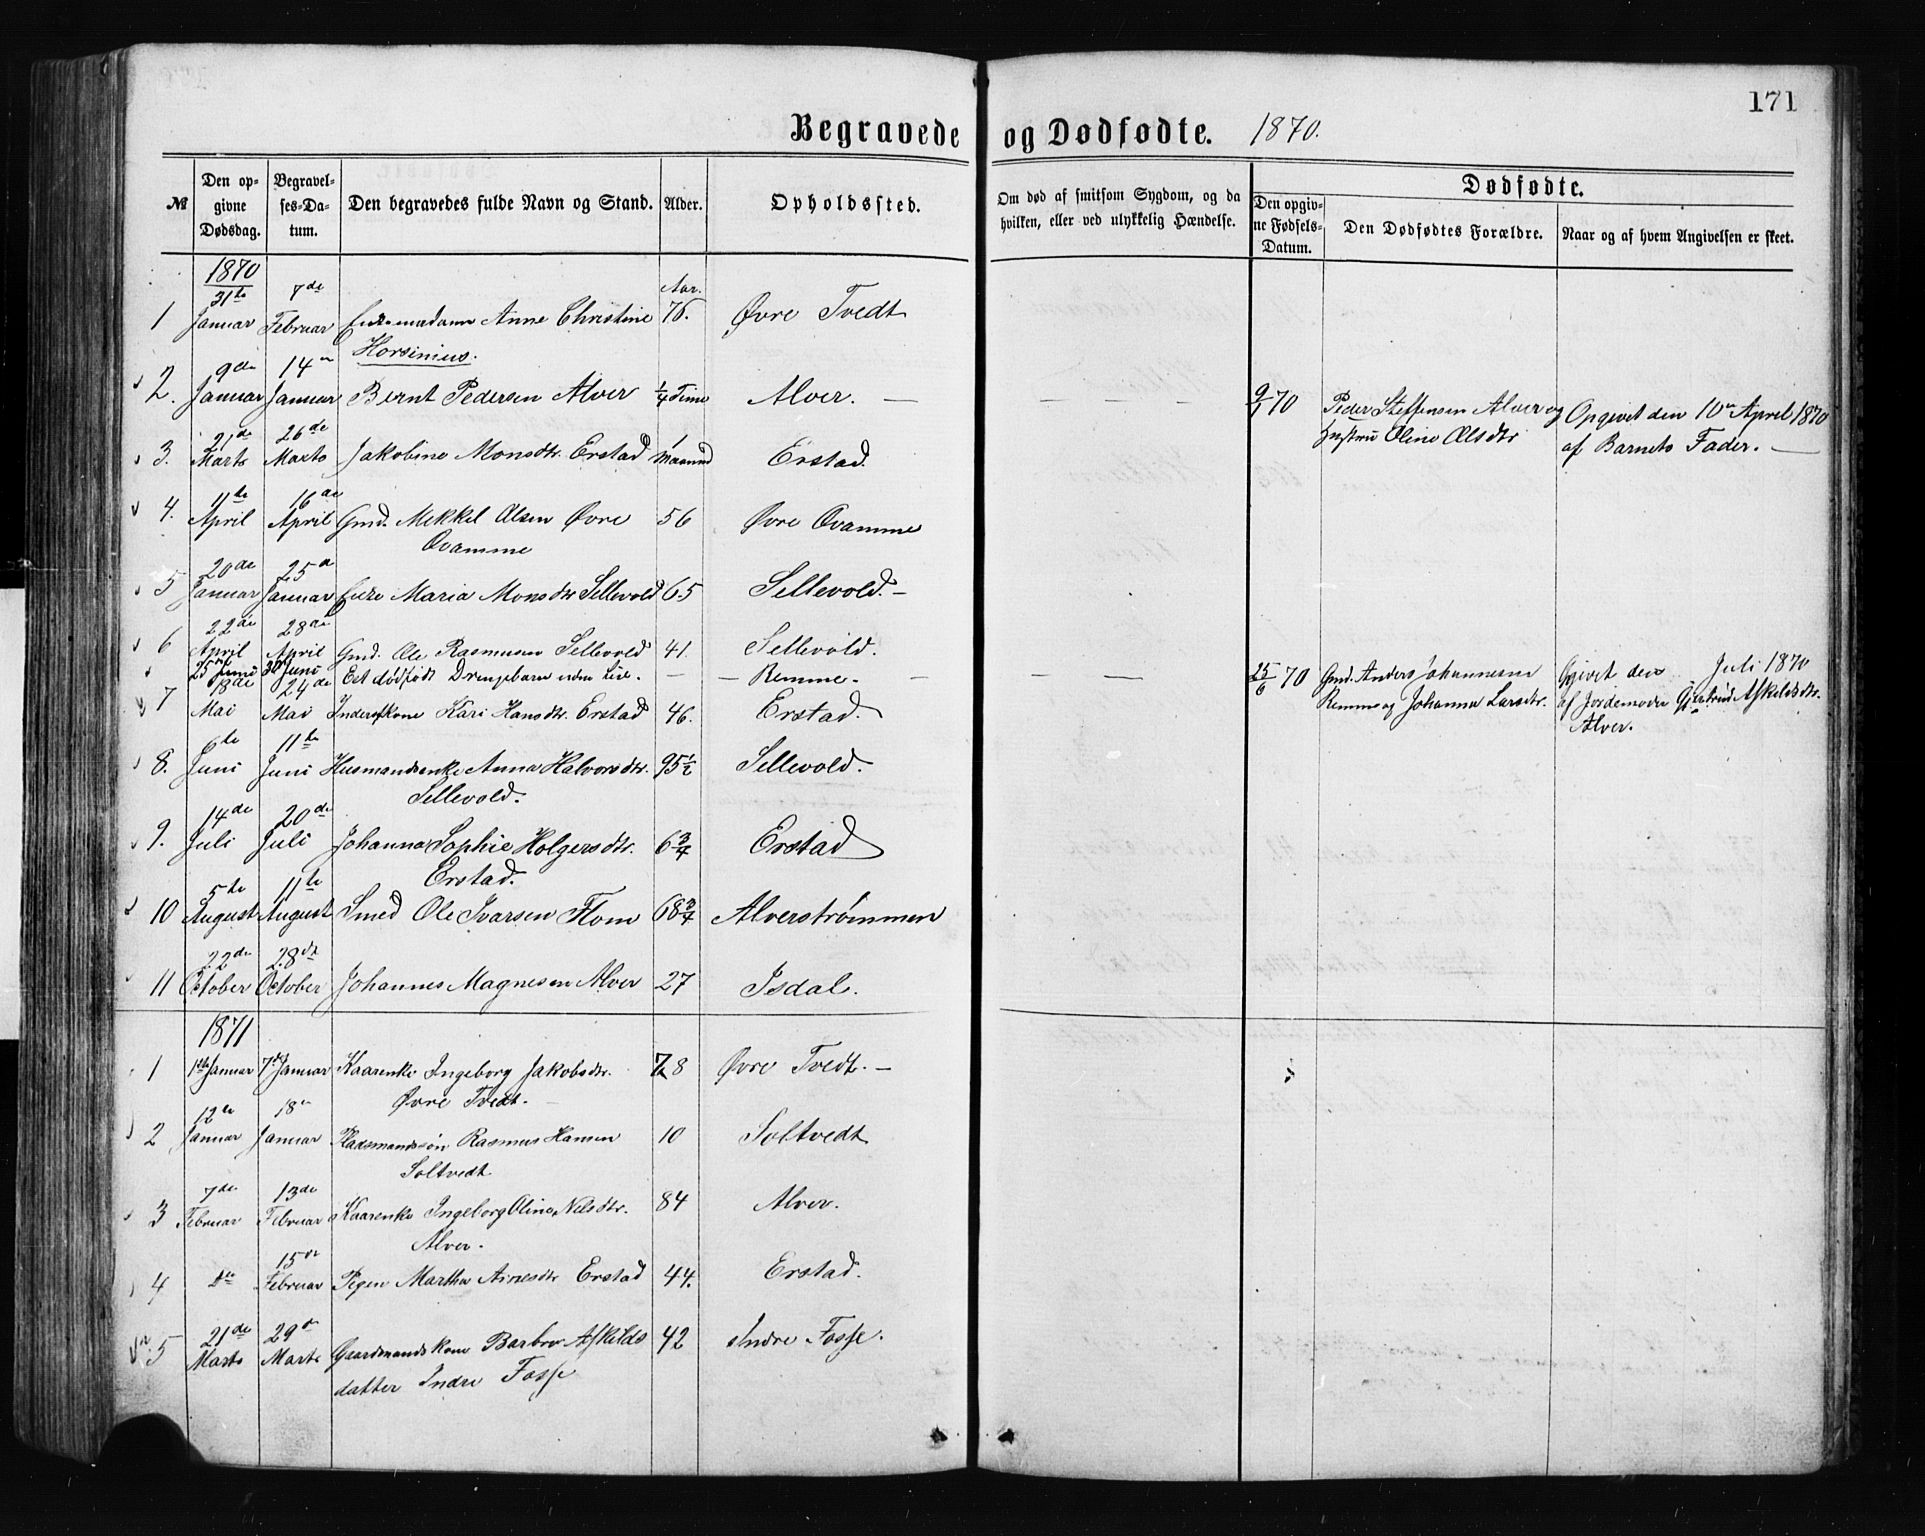 171
Begravede og Dødfødte. 1870.
№
Den opgivne Dødsdag.
Begravelses-Datum.
Den begravedes fulde Navn og Stand.
Alder.
Opholdssted.
Om død af smitsom Sygdom, og da hvilken, eller ved ulykkelig Hændelse.
Dødfødte.
Den opgivne Fødsels-Datum.
Den Dødfødtes Forældre.
Naar og af hvem Angivelsen er skeet.
1870
1 31te Januar 7de Februar Enkemadame Anne Christine Horsinius. Aar. 76. Øvre Tvedt
2. 9de Januar 14de Januar Bernt Pedersen Alver 1/4 Time Alver. — — — 9/1 70 Peder Steffensen Alver og Hustru Oline Olsdtr Opgivet den 10de April 1870 af Barnets Fader. —
3. 21de Marts 26de Marts Jakobine Monsdtr. Erstad Maaned Erstad.
4. 11te April 16de April Gmd. Mekkel Olsen Øvre Qvamme 56 Øvre Qvamme
5 20de Januar 25de Januar Enke Maria Monsdtr Sellevold 65 Sellevold. —
6 22de April 28de April Gmd. Ole Rasmusen Sellevold 41. Sellevold.
25de Juni 30de Juni Eet dødfødt Drengebarn uden Live. — — Remme. — — — 25/6 70 Gmd. Anders Johannesen Remme og Johanna Larsdtr. Opgivet den Juli 1870 af Jordemoder Gjertrud Askildsdtr. Alver.
7 18de Mai 24de Mai Inderstkone Kari Hansdtr. Erstad 46. Erstad.
8. 6te Juni 11te Juni Husmandsenke Anna Halvorsdtr. Sellevold. 95 1/2 Sellevold.
9. 14de Juli 20de Juli Johanna Sophie Holgersdtr. Erstad. 6 3/4 Erstad
10 5te August 11te August Smed Ole Ivarsen Flom 68 3/4 Alverstrømmen
11 22de October 28de October Johannes Magnesen Alver 27 Isdal.
1871
1 1ste Januar 7de Januar Kaarenke Ingeborg Jakobsdtr. Øvre Tvedt. — 78 Øvre Tvedt. —
2 12te Januar 18de Januar Pladsmandssøn Rasmus Hansen Soltvedt 10 Soltvedt
3 7de Februar 13de Februar Kaarenke Ingeborg Olina Nilsdtr. Alver. 84 Alver.
4 do 15de Februar Pigen Martha Arnesdtr Erstad 44. Erstad.
5 21de Marts 29de Marts Gaardmandskone Barbro Askildsdatter Indre Fosse 42 Indre Fosse.